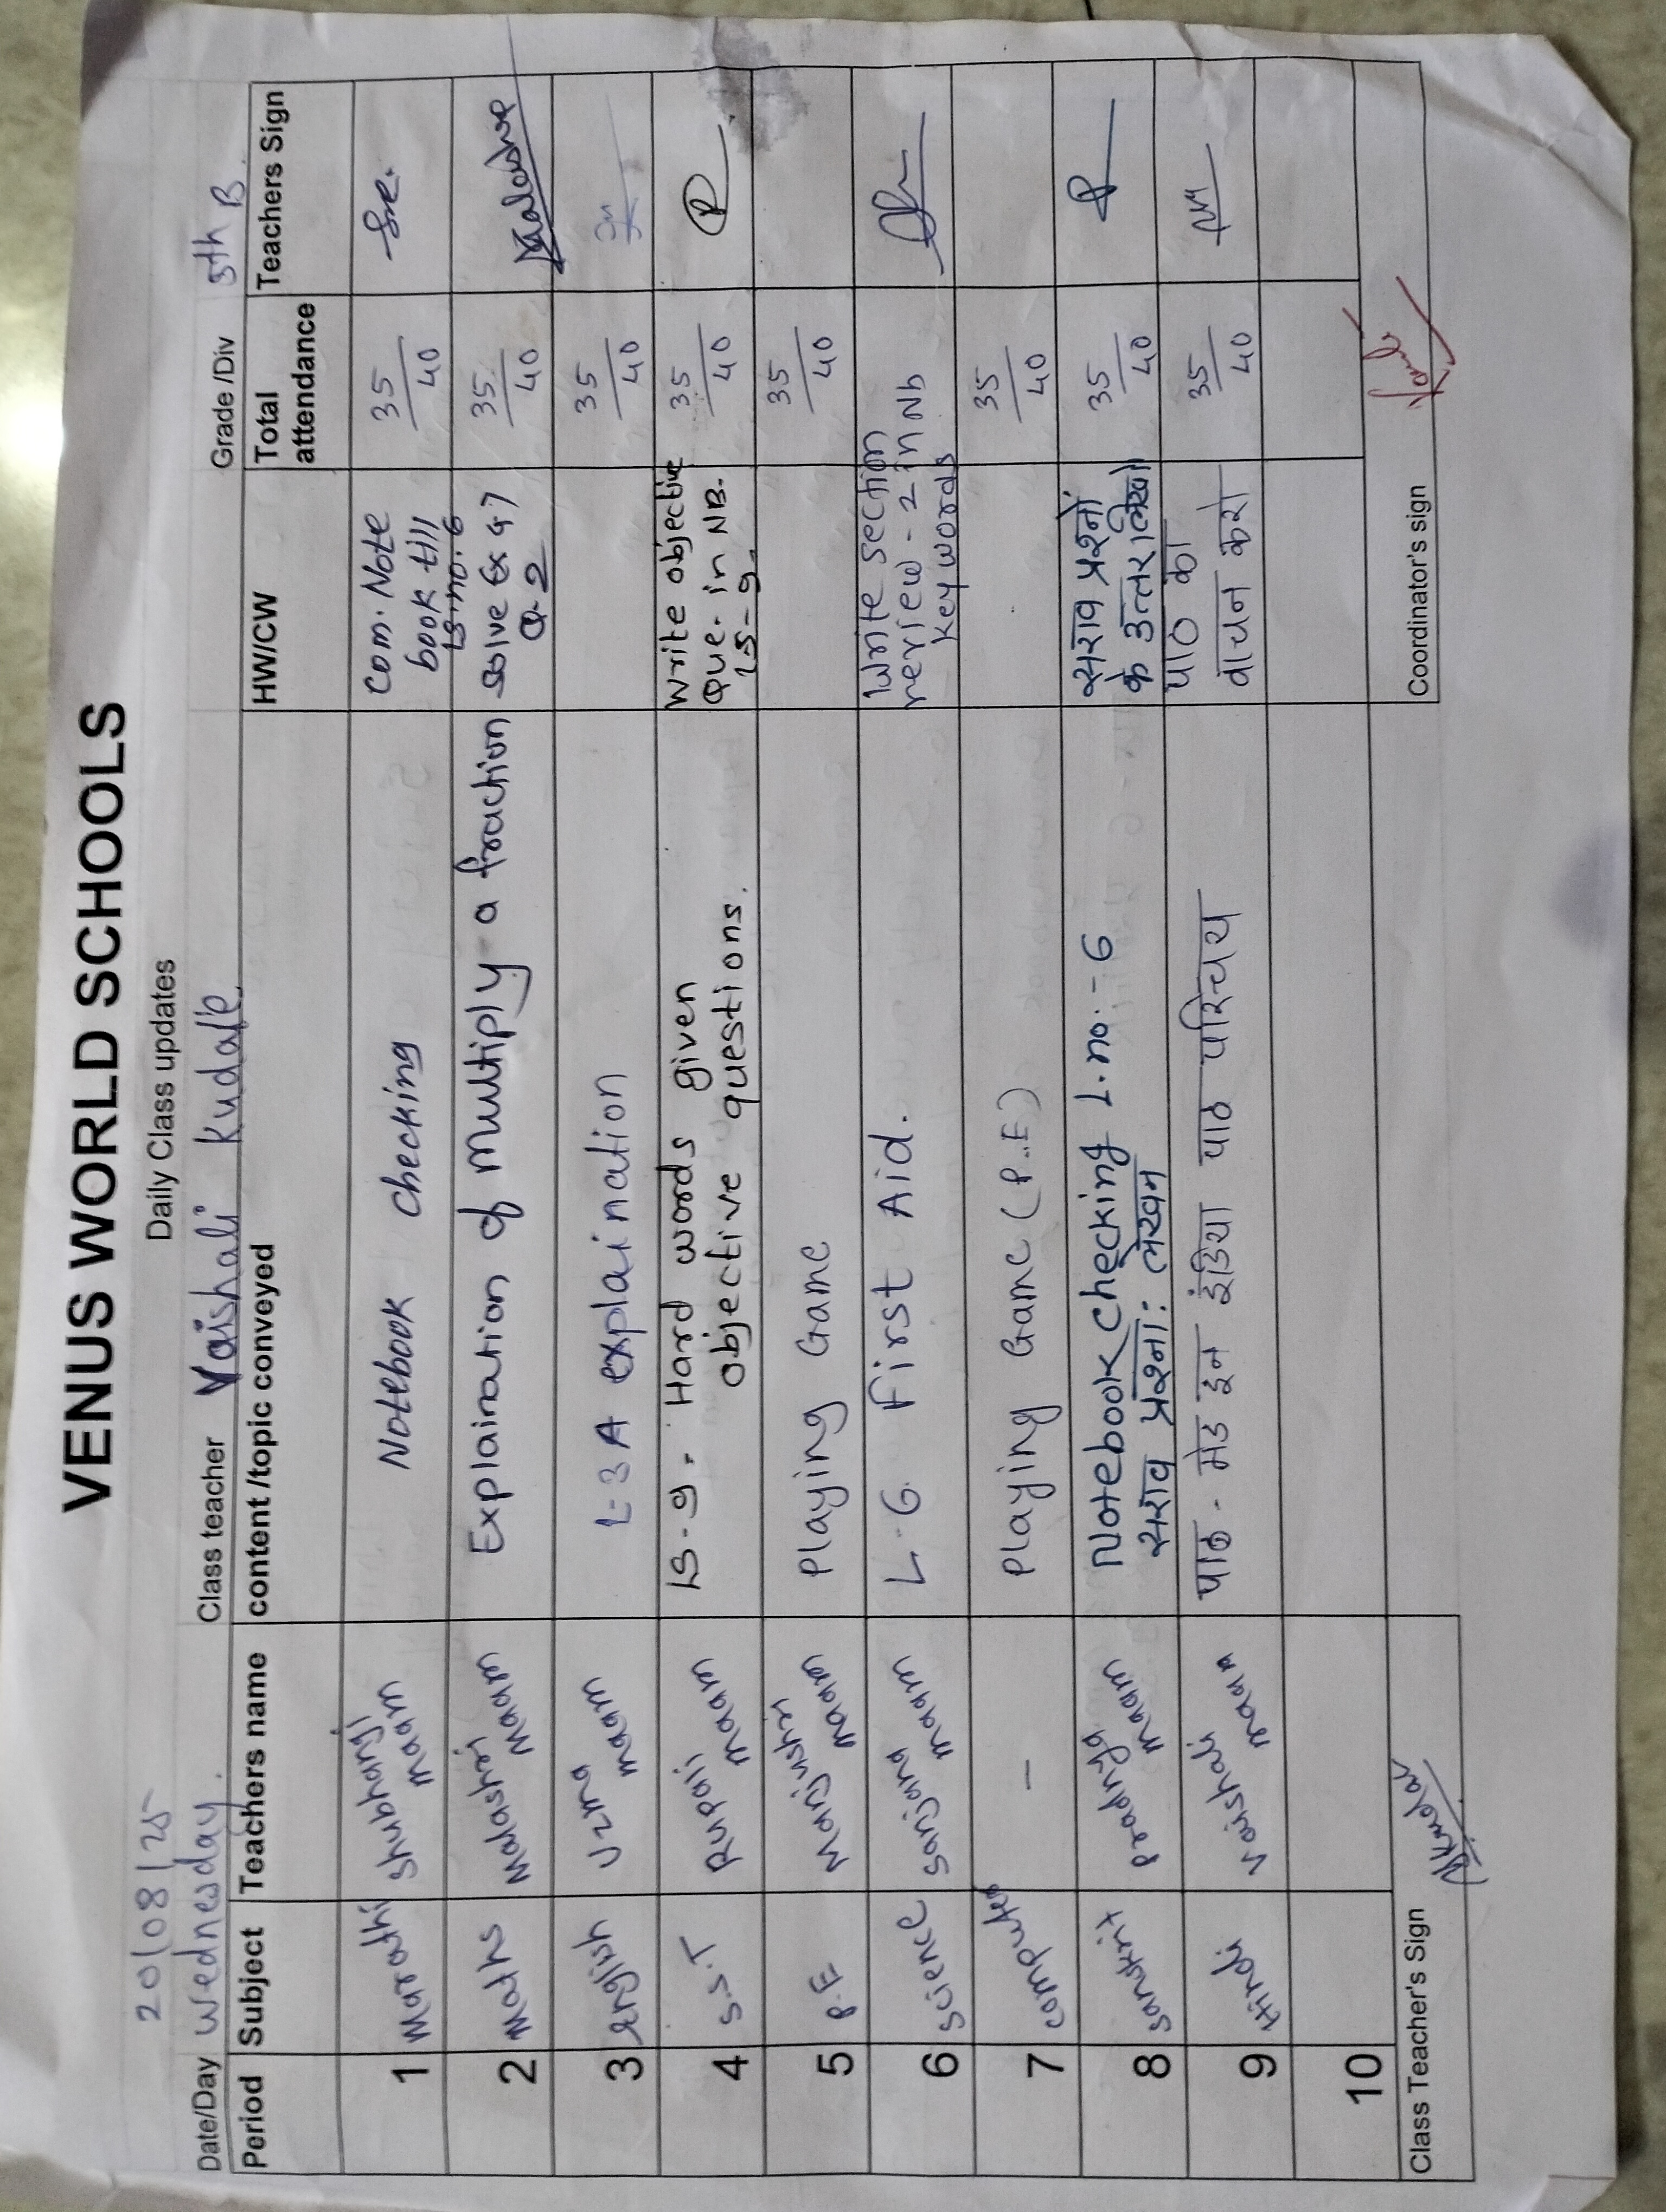 VENUS WORLD SCHOOLS
Daily Class updates
20/08/25
Date/Day Wednesday. Class teacher Vaishali Kudale. Grade /Div 5th B.
Period Subject Teachers name content /topic conveyed HW/CW Total attendance Teachers Sign
1 Marathi Shubhangi maam Notebook checking Com. Note book till Ls. no. 6 35/40
2 Maths Malashri maam Explaination of Multiply a fraction Solve Ex 47 Q-2 35/40
3 English Uzma maam L=3A explaination 35/40
4 S.S.T Rupali maam LS-9. Hard words given objective questions. Write objective Que. in NB. LS-9. 35/40
5 P.E Manjushri maam Playing Game 35/40
6 Science Sanjana maam L-6. First Aid. Write section review-2 in Nb key words
7 Computer – Playing Game (P.E) 35/40
8 Sanskrit Pradnya maam Notebook checking L.no.-6 सराव प्रश्ना: लेखन सराव प्रश्नों के उत्तर लिखो। 35/40
9 Hindi Vaishali maam पाठ - मेड इन इंडिया पाठ परिचय पाठ का वाचन करो 35/40
10
Class Teacher's Sign Coordinator's sign